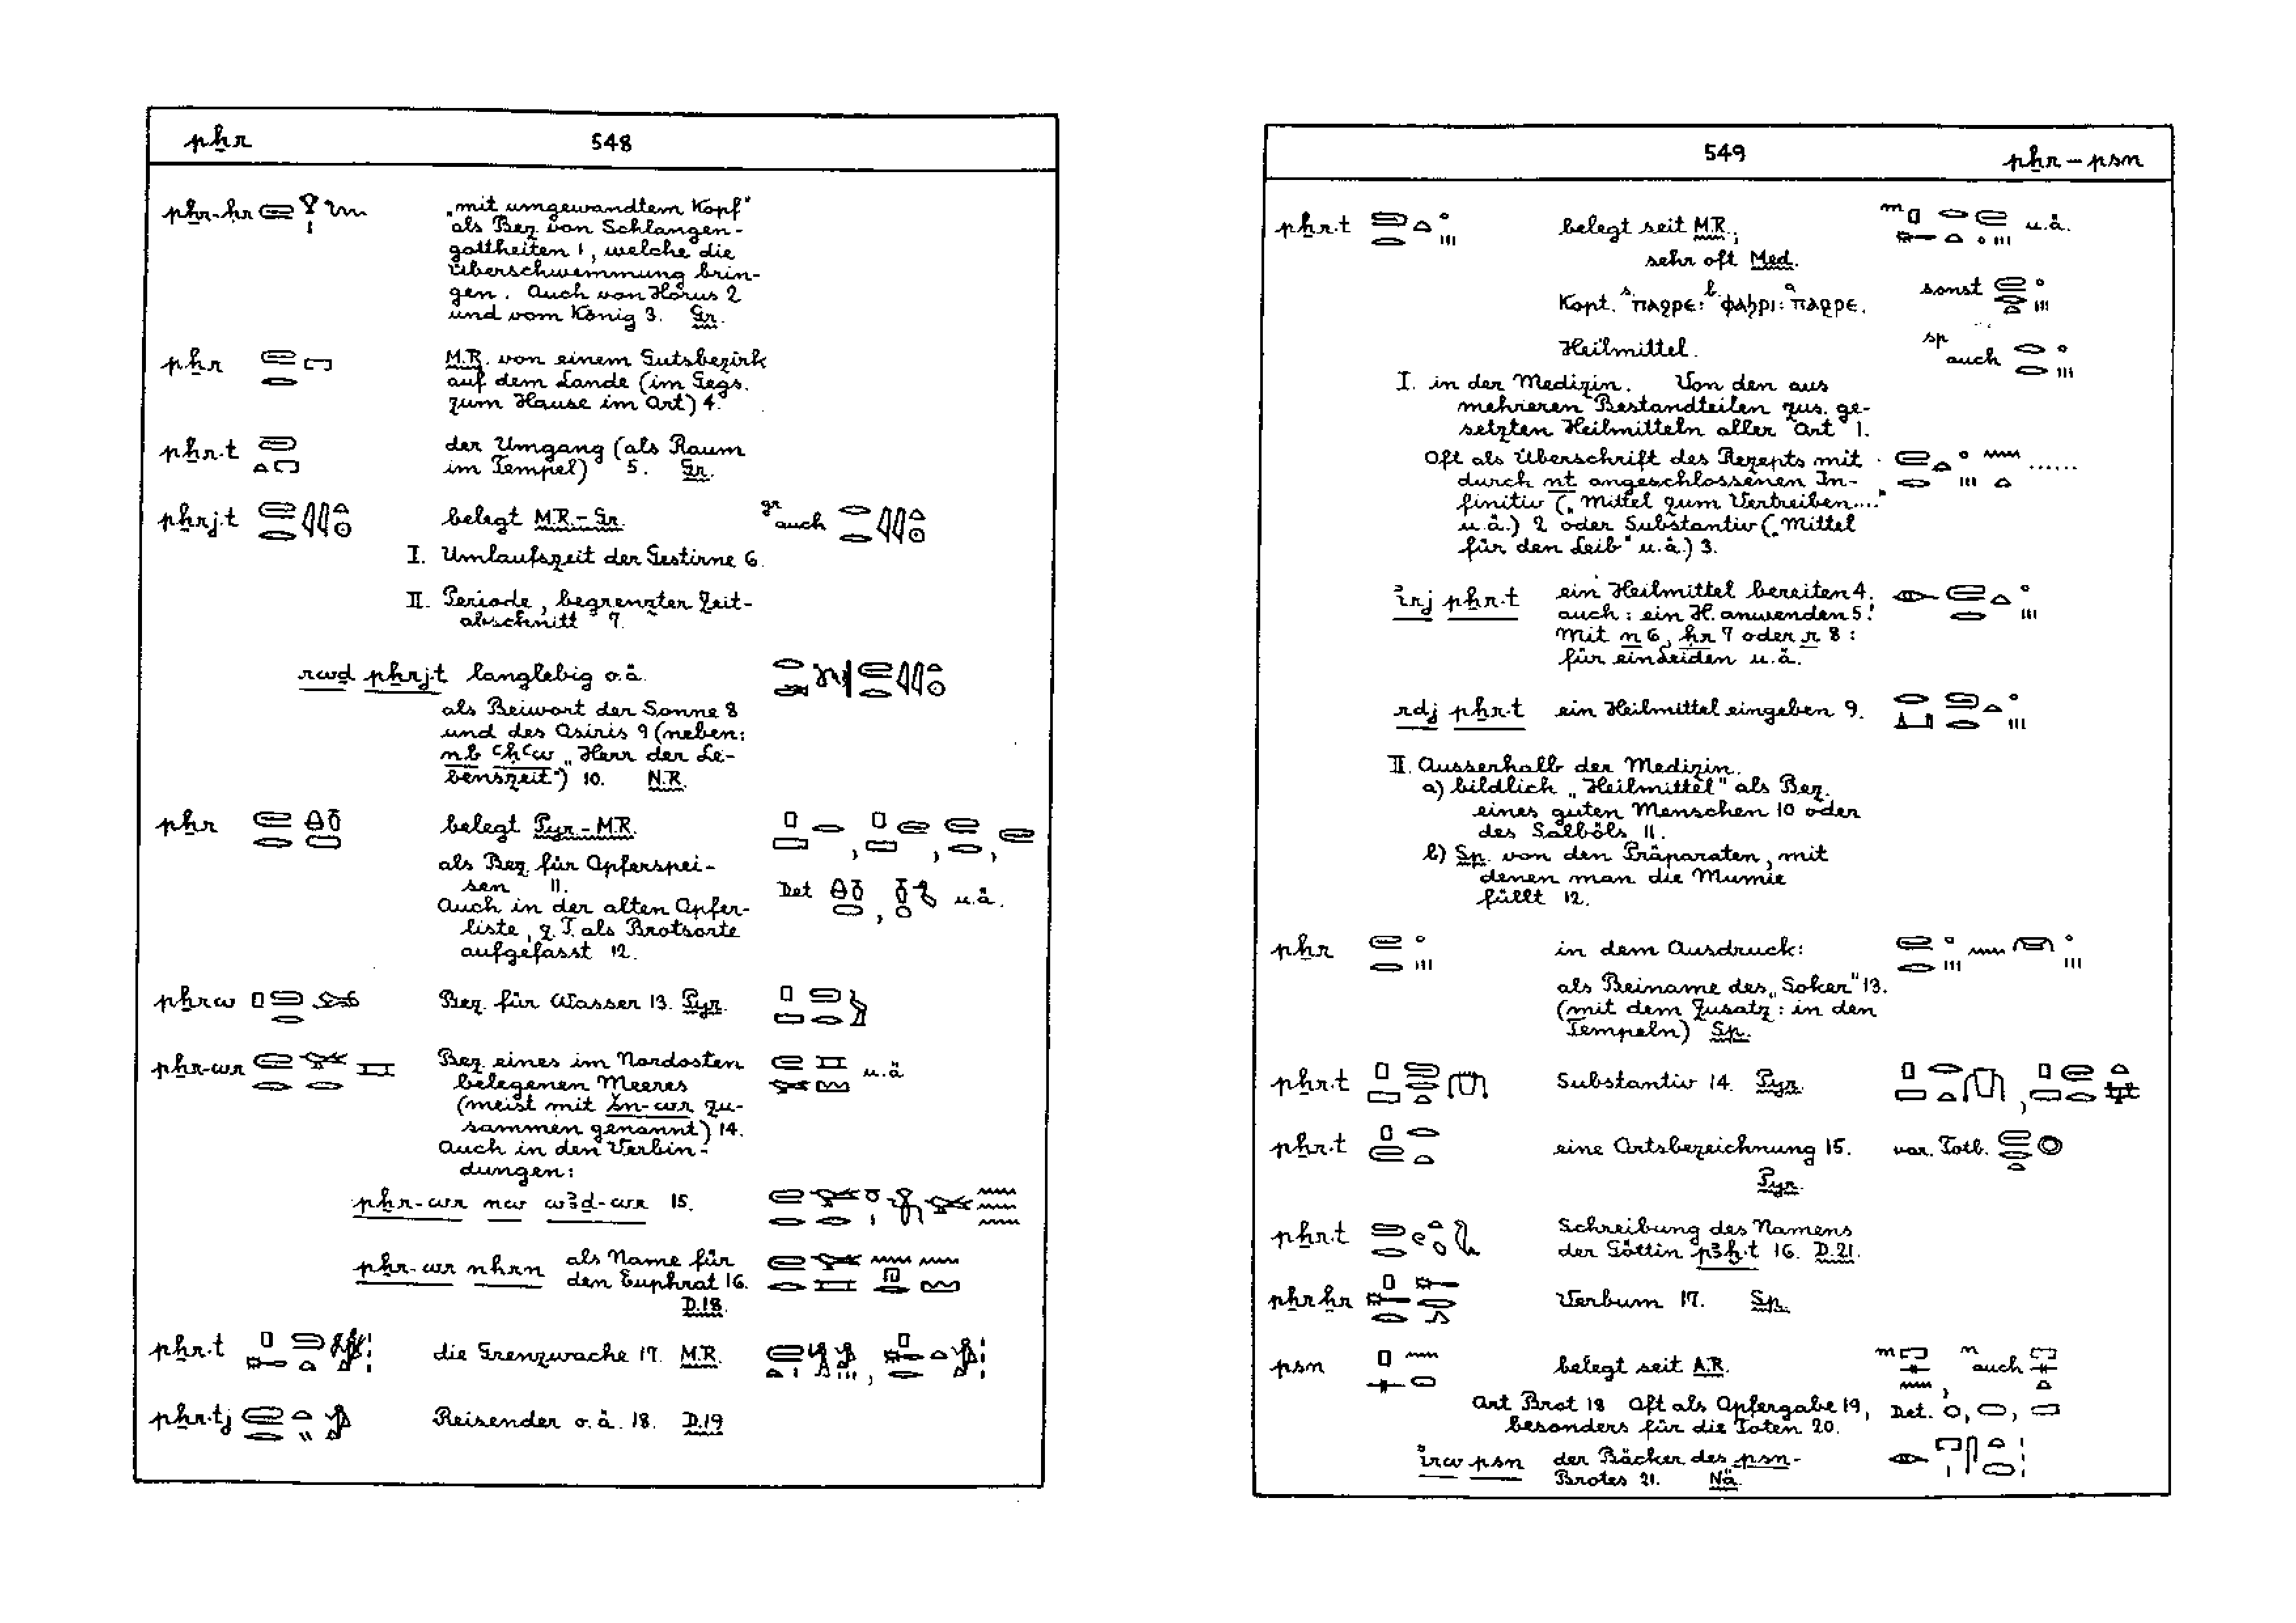 pẖr 548
pẖr-ḥr „mit umgewandtem Kopf"
als Bez. von Schlangen-
gottheiten 1, welche die
Überschwemmung brin-
gen. Auch von Horus 2
und vom König 3. Gr.
pẖr M.R. von einem Gutsbezirk
auf dem Lande (im Gegs.
zum Hause im Ort) 4.
pẖr.t der Umgang (als Raum
im Tempel) 5. Gr.
pẖrj.t belegt M.R.-Gr. gr auch
I. Umlaufszeit der Gestirne 6.
II. Periode, begrenzter Zeit-
abschnitt 7.
rwḏ pẖrj.t langlebig o.ä.
als Beiwort der Sonne 8
und des Osiris 9 (neben:
nb ꜥḥꜥw „Herr der Le-
benszeit") 10. N.R.
pẖr belegt Pyr-M.R.
als Bez. für Opferspei-
sen 11. Det u.ä.
Auch in der alten Opfer-
liste, z.T. als Brotsorte
aufgefasst 12.
pẖrw Bez. für Wasser 13. Pyr.
pẖr-wr Bez. eines im Nordosten u.ä
belegenen Meeres
(meist mit šn-wr zu-
sammen genannt) 14.
Auch in den Verbin-
dungen:
pẖr-wr nw wꜣḏ-wr 15.
pẖr-wr nhrn als Name für
den Euphrat 16.
D.18.
pẖr.t die Grenzwache 17. M.R.
pẖr.tj Reisender o.ä. 18. D.19
549 pẖr – psn
pẖr.t belegt seit M.R.; m u.ä.
sehr oft Med.
Kopt. s. ⲡⲁϩⲣⲉ: b. ⲫⲁϧⲣⲓ: a ⲡⲁϩⲣⲉ. sonst
Heilmittel. sp auch
I. in der Medizin. Von den aus
mehreren Bestandteilen zus. ge-
setzten Heilmitteln aller Art 1.
Oft als Überschrift des Rezepts mit ......
durch nt angeschlossenen In-
finitiv („Mittel zum Vertreiben...."
u.ä.) 2 oder Substantiv („Mittel
für den Leib" u.ä.) 3.
ı͗rj pẖr.t ein Heilmittel bereiten 4.
auch: ein H. anwenden 5.
Mit n 6, ḥr 7 oder r 8:
für ein Leiden u.ä.
rdj pẖr.t ein Heilmittel eingeben 9.
II. Ausserhalb der Medizin.
a) bildlich „Heilmittel" als Bez.
eines guten Menschen 10 oder
des Salböls 11.
b) Sp. von den Präparaten, mit
denen man die Mumie
füllt 12.
pẖr in dem Ausdruck:
als Beiname des „Soker" 13.
(mit dem Zusatz: in den
Tempeln) Sp.
pẖr.t Substantiv 14. Pyr.
pẖr.t eine Ortsbezeichnung 15. var. Totb.
Pyr.
pẖr.t Schreibung des Namens
der Göttin pꜣḫ.t 16. D.21.
pẖrẖr Verbum 17. Sp.
psn belegt seit A.R. m n auch
Art Brot 18 Oft als Opfergabe 19, Det.
besonders für die Toten 20.
ı͗rw psn der Bäcker des psn-
Brotes 21. Nä.